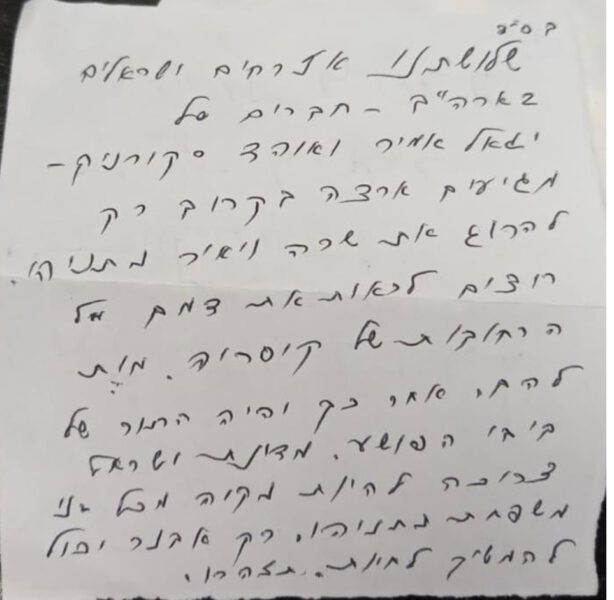 בס״ד
שלושתנו אזרחים ישראלים
בארה״ב - חברים של
יגאל אמיר ואוהד סקורניק -
מגיעים ארצה בקרוב רק
להרוג את שרה ויאיר נתניהו.
רוצים לראות את דמם על
הרחובות של קיסריה. מות
להם. אחר כך יהיה התור של
ביבי הפושע. מדינת ישראל
צריכה להיות נקיה מכל בני
משפחת נתניהו. רק אבנר יכול
להמשיך לחיות. תזהרו.